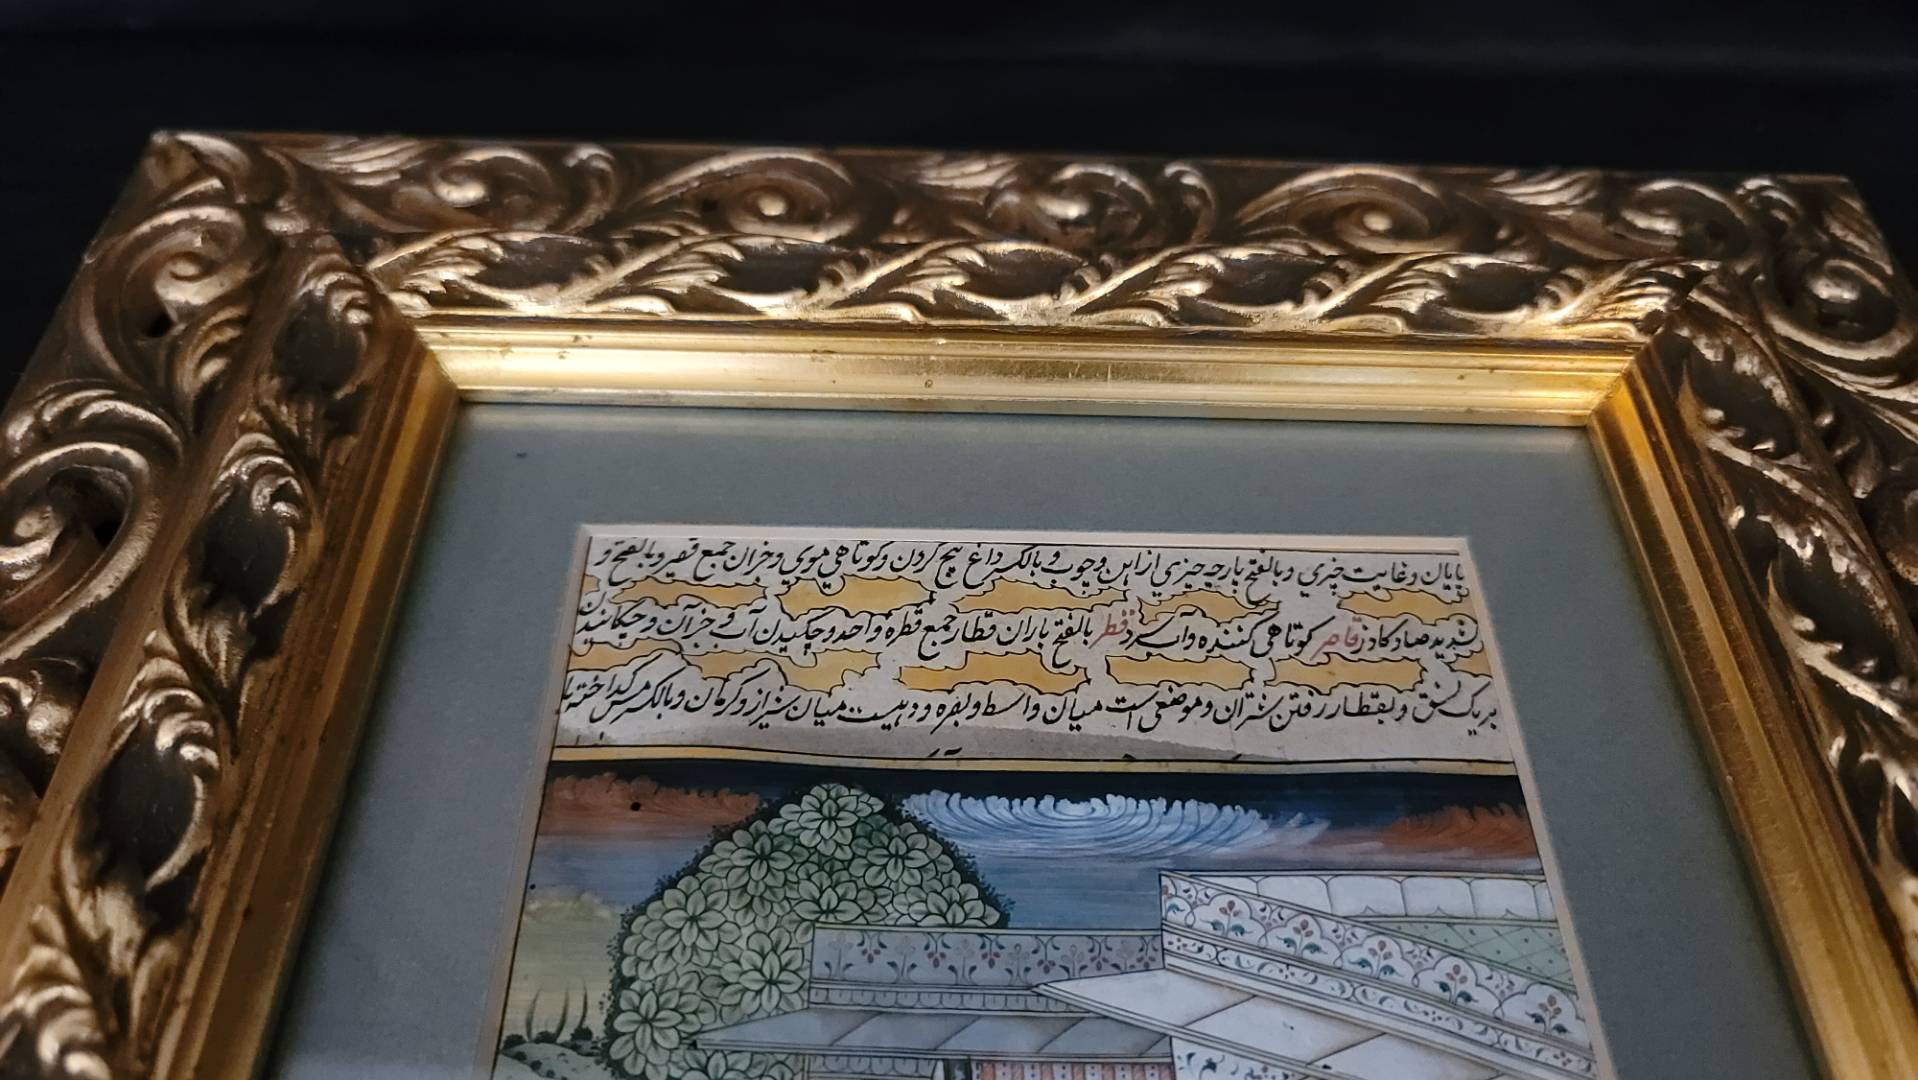 پایان و غایت چیزی و بالفتح پارچه چیزی از این وجوب و بالکسر داغ بیخ گردن و کوتاهی موی و خزان جمع قصیر و بالفتح و
تشدید صاد کاذر قاصر کوتاهی کننده و آب سرد قطر بالفتح باران قطار جمع قطره واحد و چکیدن آب و جز آن و چکانیدن
بریک نسق و بقطار رفتن شتران و موضعی است میان واسط و بصره و دهیست میان شیراز و کرمان و بالکسر مس گداخته یا